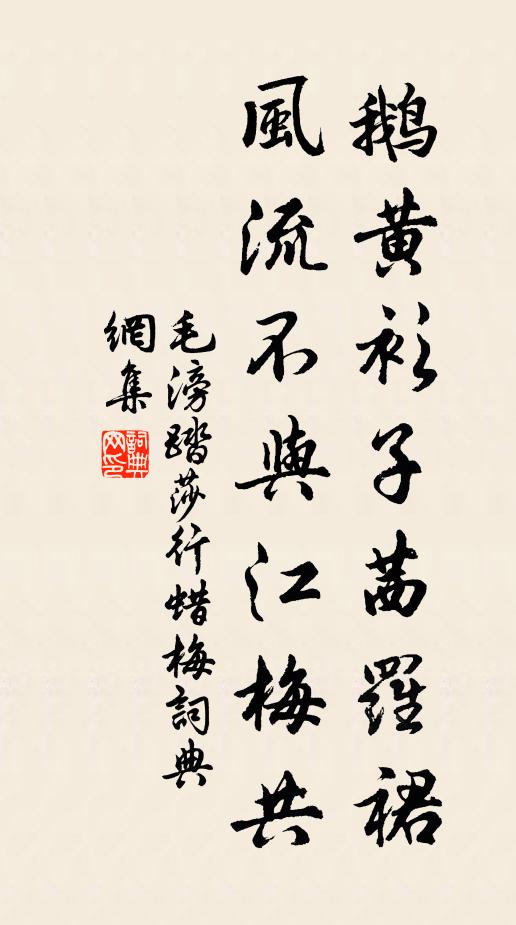 鵝黄衫子茜羅裙
風流不與江梅共
毛滂踏莎行蜡梅詞典
網集
詞典
网印